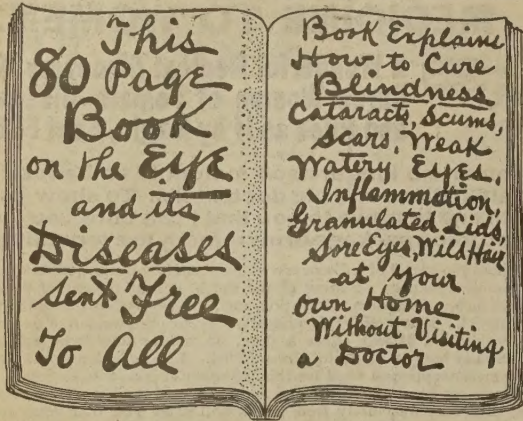 This
80 Page
Book
on the Eye
and its
Diseases
Sent Free
To All
Book Explains
How to Cure
Blindness
Cataracts, Scums,
Scars, Weak
Watery Eyes,
Inflammation,
Granulated Lids,
Sore Eyes, Wild Hair
at Your
own Home
Without Visiting
a Doctor